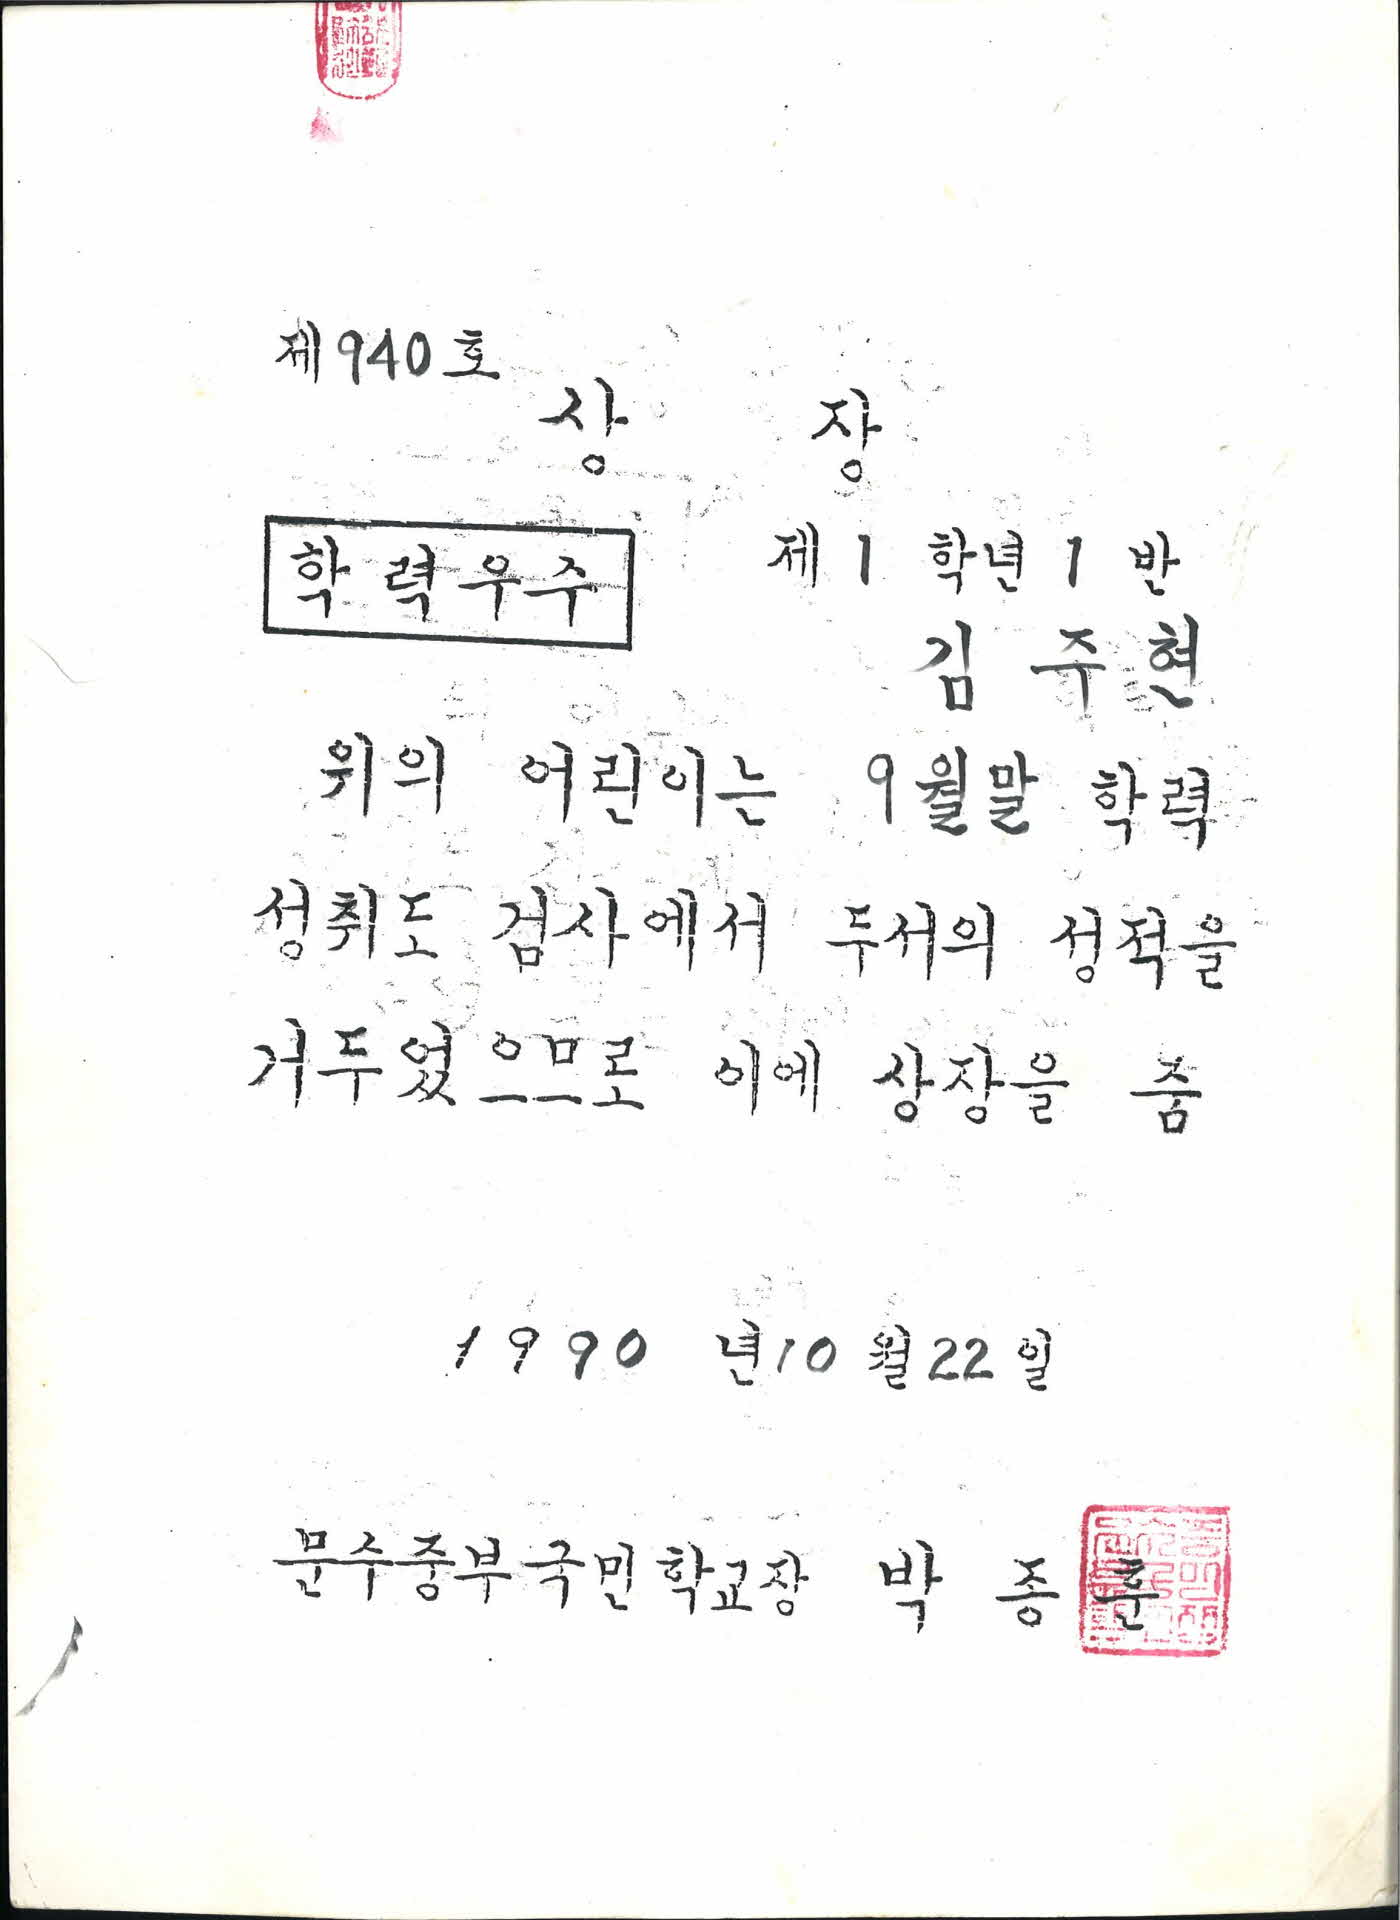 제940호
상 장
학력우수
제1학년1반
김주현
위의 어린이는 9월말 학력
성취도 검사에서 두서의 성적을
거두었으므로 이에 상장을 줌
1990년10월22일
문수중부국민학교장 박종훈